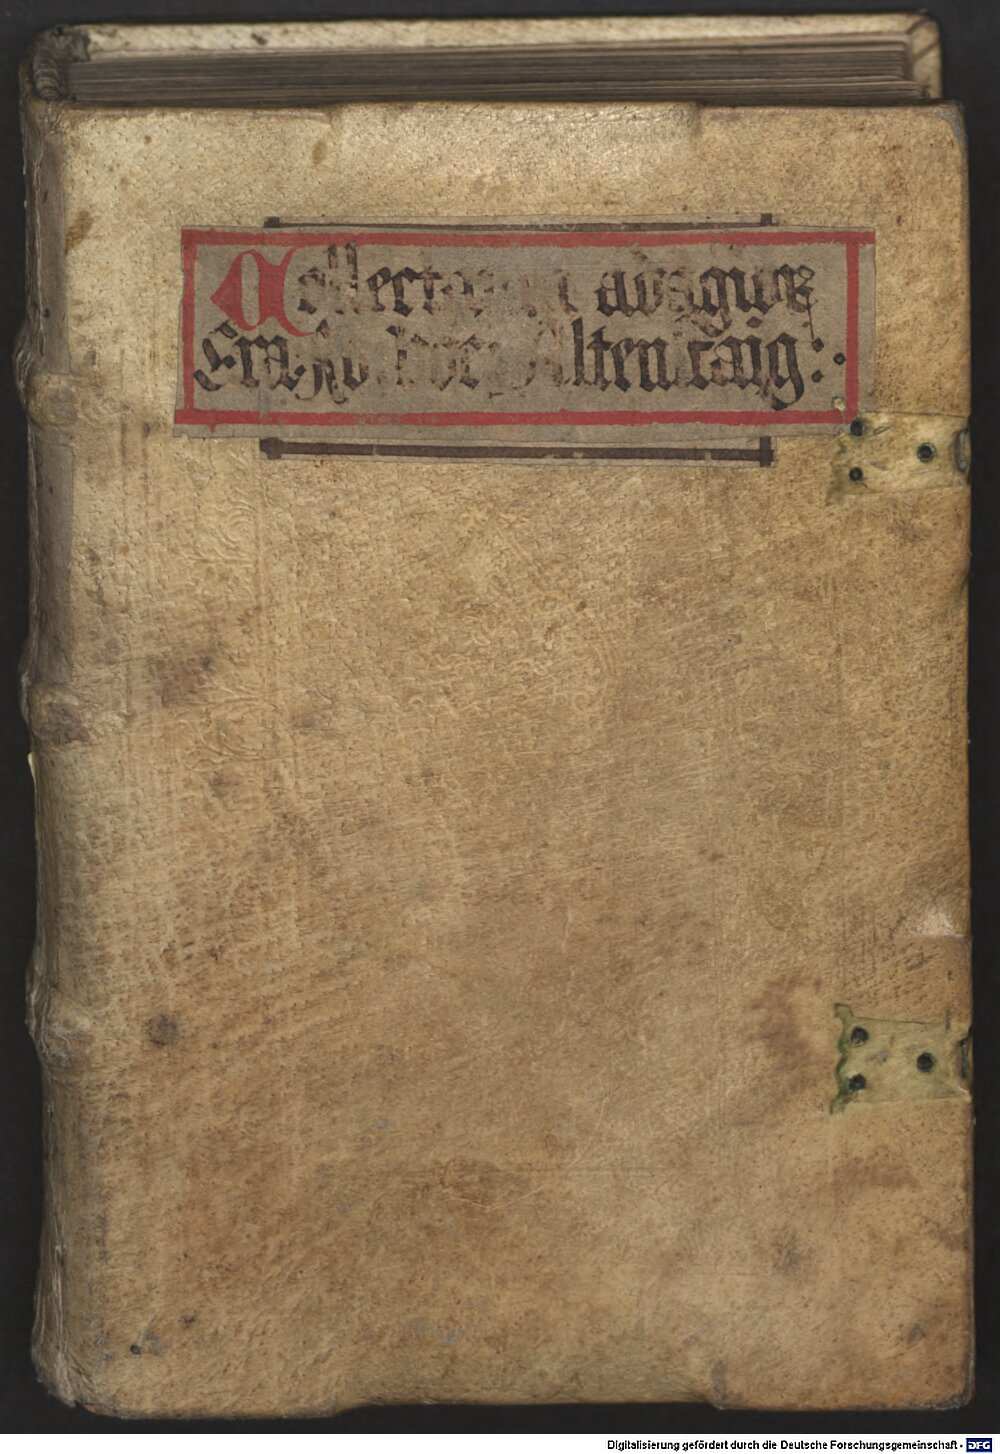 Collectorium adagiorum
Fra: Altenstaig:.
Digitalisierung gefördert durch die Deutsche Forschungsgemeinschaft - DFG